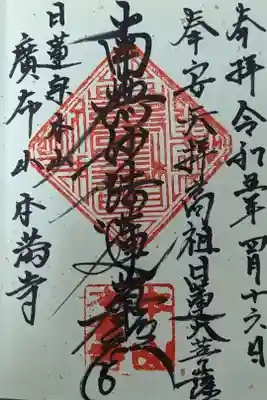 奉拝 令和五年 四月十六日
奉安大拝高祖日蓮大菩薩
南無妙法蓮華経
日蓮宗本山
廣布山 本満寺